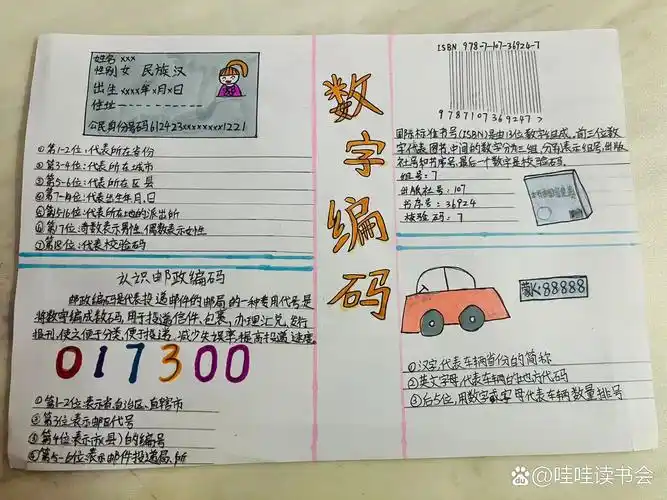 姓名 xxx
性别 女 民族汉
出生 xxxx年x月x日
住址
公民身份号码 612423xxxxxxxx1221
①第1-2位:代表所在省份
②第3-4位:代表所在城市
③第5-6位:代表所在区县
④第7-14位:代表出生年、月、日
⑤第15-16位:代表所在地的派出所
⑥第17位:奇数表示男性,偶数表示女性
⑦第18位:代表校验码
认识邮政编码
邮政编码是代表投送邮件的邮局的一种专用代号,是
将数字编成数码,用于投递信件、包裹,办理汇兑,发行
报刊,使之便于分类,便于投递,减少失误率,提高投递速度。
017300
①第1-2位表示省、自治区、直辖市
②第3位:表示邮区代号
③第4位:表示市(县)的编号
④第5-6位:表示邮件投递局、所
数字编码
ISBN 978-7-107-36924-7
9787107369247>
国际标准书号(ISBN)是由13位数字组成,前三位数
字代表图书,中间的数字分为三组,分别表示组号、出版
社号和书序号,最后一个数字是校验码。
组号:7
出版社号:107
书序号:36924
校验码:7
蒙K·88888
①汉字代表车辆省份的简称
②英文字母,代表车辆的地方代码
③后5位,用数字或字母代表车辆数量排号
Baidu @哇哇读书会